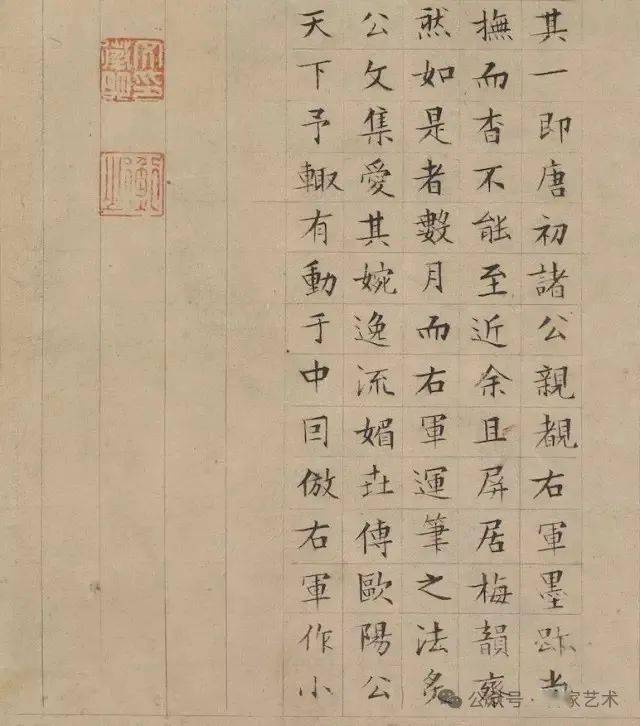 其一即唐初諸公親覩右軍墨跡
撫而杳不能至近余且屏居梅韻齋
然如是者數月而右軍運筆之法多
公文集愛其婉逸流媚傳歐陽公
天下予輙有動于中囙倣右軍作小
公众号·家艺术